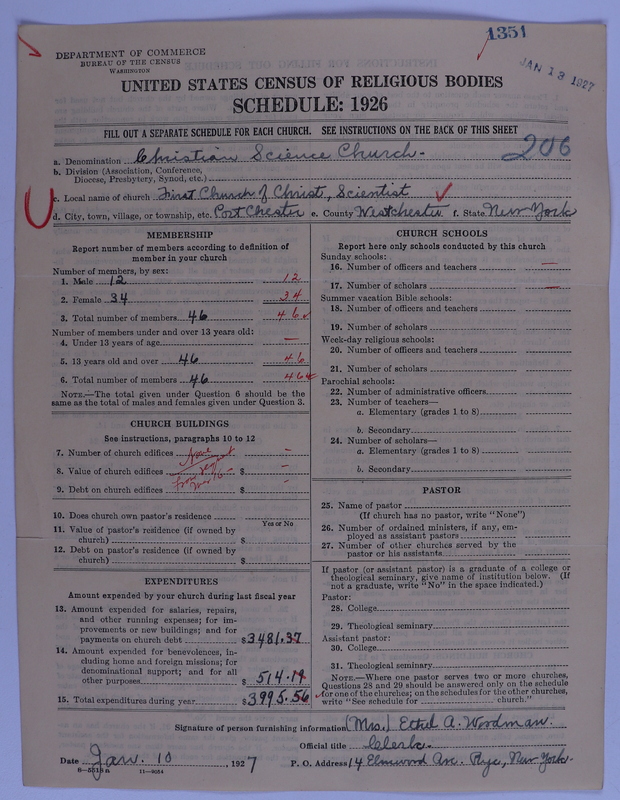 1351
JAN 13 1927
DEPARTMENT OF COMMERCE
BUREAU OF THE CENSUS
WASHINGTON
UNITED STATES CENSUS OF RELIGIOUS BODIES
SCHEDULE: 1926
FILL OUT A SEPARATE SCHEDULE FOR EACH CHURCH. SEE INSTRUCTIONS ON THE BACK OF THIS SHEET
206
a. Denomination Christian Science Church.
b. Division (Association, Conference,
Diocese, Presbytery, Synod, etc.)
c. Local name of church First Church of Christ, Scientist
d. City, town, village, or township, etc. Port Chester e. County Westchester f. State New York
MEMBERSHIP
Report number of members according to definition of
member in your church
Number of members, by sex:
1. Male 12 12
2. Female 34 34
3. Total number of members 46 46
Number of members under and over 13 years old:
4. Under 13 years of age —
5. 13 years old and over 46 46
6. Total number of members 46 46
NOTE.—The total given under Question 6 should be
same as the total of males and females given under Question 3.
CHURCH BUILDINGS
See instructions, paragraphs 10 to 12
7. Number of church edifices –
8. Value of church edifices $ –
9. Debt on church edifices $ –
10. Does church own pastor's residence
Yes or No
11. Value of pastor's residence (if owned by
church) $
12. Debt on pastor's residence (if owned by
church) $
EXPENDITURES
Amount expended by your church during last fiscal year
13. Amount expended for salaries, repairs,
and other running expenses; for im-
provements or new buildings; and for
payments on church debt $3481.37
14. Amount expended for benevolences, in-
cluding home and foreign missions; for
denominational support; and for all
other purposes $514.19
15. Total expenditures during year $3995.56
CHURCH SCHOOLS
Report here only schools conducted by this church
Sunday schools:
16. Number of officers and teachers —
17. Number of scholars —
Summer vacation Bible schools:
18. Number of officers and teachers
19. Number of scholars
Week-day religious schools:
20. Number of officers and teachers
21. Number of scholars
Parochial schools:
22. Number of administrative officers
23. Number of teachers—
a. Elementary (grades 1 to 8)
b. Secondary
24. Number of scholars—
a. Elementary (grades 1 to 8)
b. Secondary
PASTOR
25. Name of pastor
(If church has no pastor, write "None")
26. Number of ordained ministers, if any, em-
ployed as assistant pastors
27. Number of other churches served by the
pastor or his assistants
If pastor (or assistant pastor) is a graduate of a college or
theological seminary, give name of institution below. (If
not a graduate, write "No" in the space indicated.)
Pastor:
28. College
29. Theological seminary
Assistant pastor:
30. College
31. Theological seminary
NOTE.—Where one pastor serves two or more churches,
Questions 28 and 29 should be answered only on the schedule
for one of the churches; on the schedules for the other churches,
write "See schedule for church."
Signature of person furnishing information (Mrs.) Ethel A. Woodman.
Official title Clerk.
Date Jan. 10, 1927 P. O. Address 14 Elmwood Ave. Rye, New York.
11—9054